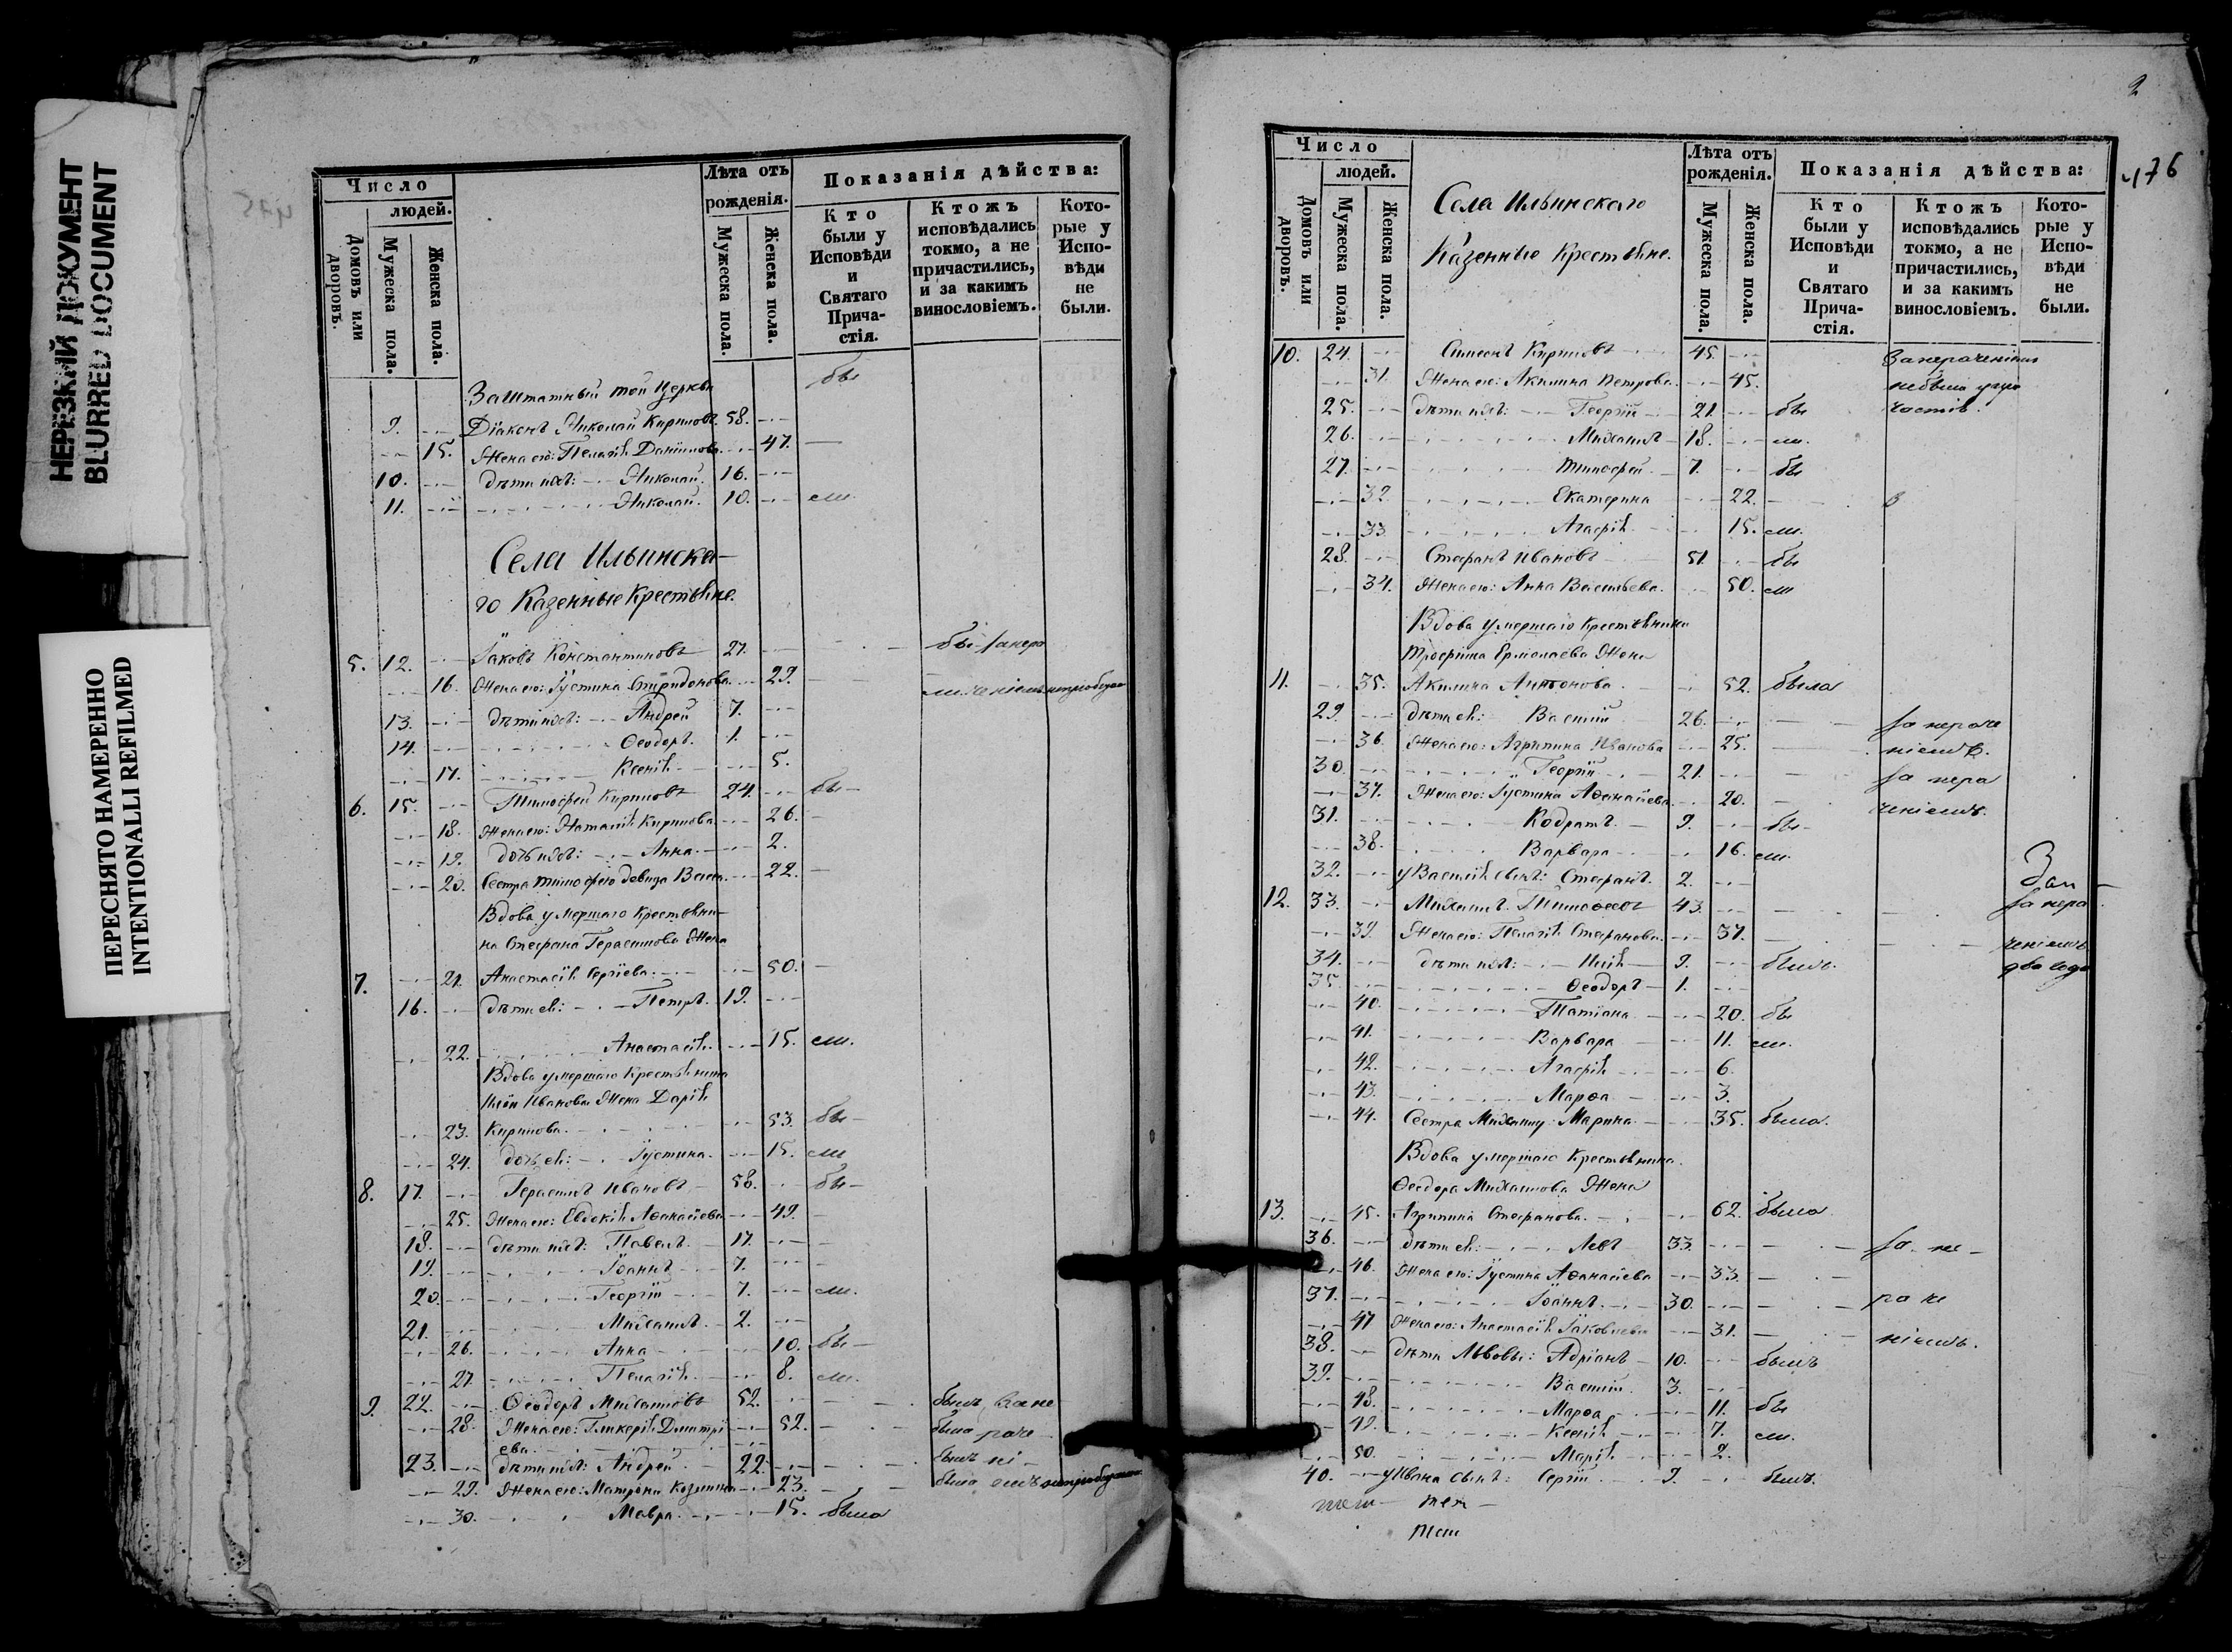 НЕРЕЗКИЙ ДОКУМЕНТ
BLURRED DOCUMENT
ПЕРЕСНЯТО НАМЕРЕННО
INTENTIONALLI REFILMED
Число
людей.
Домовъ или дворовъ.
Мужеска пола.
Женска пола.
Лѣта отъ рожденія.
Мужеска пола.
Женска пола.
Показанія дѣйства:
Кто были у Исповѣди и Святаго Причастія.
Ктожъ исповѣдались токмо, а не причастились, и за какимъ винословіемъ.
Которые у Исповѣди не были.
Заштатный той Церкви бы
9. Діаконъ Николай Кириловъ. 58.
15. Жена его: Пелагія Даніилова 47.
10. дѣти ихъ: Николай. 16.
11. Николай. 10. ли.
Села Ильинска-
го Казенные Крестьяне.
5. 12. Іаковъ Константиновъ 27. бы
16. Жена его: Іустина Спиридонова 29. ли
13. дѣти ихъ: Андрей 7.
14. Ѳеодоръ. 1.
17. Ксенія 5.
6. 15. Тимофей Кириловъ 24. бы
18. Жена его: Наталія Кирилова 26.
19. дочь ихъ: Анна 2.
20. Сестра Тимофею девица 22.
Вдова умершаго крестьяни-
на Стефана Герасимова Жена
7. 21. Анастасія Сергіева. 50.
16. дѣти ея: Петръ. 19.
22. Анастасія. 15. ли.
Вдова умершаго Крестьянина
Иліи Иванова Жена Дарія
23. Кирилова. 53. бы
24. дочь ея: Іустина. 15. ли
8. 17. Герасимъ Ивановъ 58. бы
25. Жена его: Евдокія Аѳанасіева 49.
18. дѣти ихъ: Павелъ 17.
19. Іоаннъ 7.
20. Георгій 7. ли.
21. Михаилъ 2.
26. Анна 10. бы
27. Пелагія 8. ли.
9. 22. Ѳеодоръ Михаиловъ 52. былъ за не
28. Жена его: Гликерія Дмитрі 52. была раче
ева.
23. дѣти ихъ: Андрей 22. былъ ні
29. Жена его: Матрона Козмина 23. была емъ
30. Мавра 15. была
2
476
Число
людей.
Домовъ или дворовъ.
Мужеска пола.
Женска пола.
Села Ильинскаго
Казенные Крестьяне.
Лѣта отъ рожденія.
Мужеска пола.
Женска пола.
Показанія дѣйства:
Кто были у Исповѣди и Святаго Причастія.
Ктожъ исповѣдались токмо, а не причастились, и за какимъ винословіемъ.
Которые у Исповѣди не были.
10. 24. Симеонъ Кириловъ 45. За нераченіемъ
31. Жена его: Акилина Петрова 45. небыли
25. дѣти ихъ: Георгій 21. бы
26. Михаилъ 18. ли.
27. Тимофей 7. бы
32. Екатерина 22.
33. Агафія 15. ли.
28. Стефанъ Ивановъ 51. бы
34. Жена его: Анна Васильева. 50. ли
Вдова умершаго крестьянина
Трофима Ермолаева Жена
11. 35. Акилина Антонова. 52. была
29. дѣти ея: Василій 26. за нераче
36. Жена его: Агрипина Иванова 25. ніемъ.
30. Георгій 21. за нера
37. Жена его: Іустина Аѳанасіева 20. ченіемъ.
31. Кодратъ 9. бы
38. Варвара 16. ли.
32. у Василія сынъ: Стефанъ. 2.
12. 33. Михаилъ Тимофеевъ 43. за нера
39. Жена его: Пелагія Стефанова 37. ченіемъ
34. дѣти ихъ: Илія 9. былъ. два года
35. Ѳеодоръ 1.
40. Татіана 20. бы
41. Варвара 11. ли.
42. Агафія 6.
43. Марѳа 3.
44. Сестра Михаилу Марина 35. была.
Вдова умершаго Крестьянина
Ѳеодора Михаилова Жена
13. 45. Агрипина Стефанова. 62. была
36. дѣти ея: Левъ 33. за не
46. Жена его: Іустина Аѳанасіева 33.
37. Іоаннъ 30. ра че
47 Жена его: Анастасія Іаковлева 31. ніемъ.
38. дѣти Львовы: Адріанъ 10. былъ
39. Василій 3.
48. Марѳа 11. бы
49. Ксенія 7. ли.
50. Марія 2.
40. у Ивана сынъ: Сергій 9. былъ.